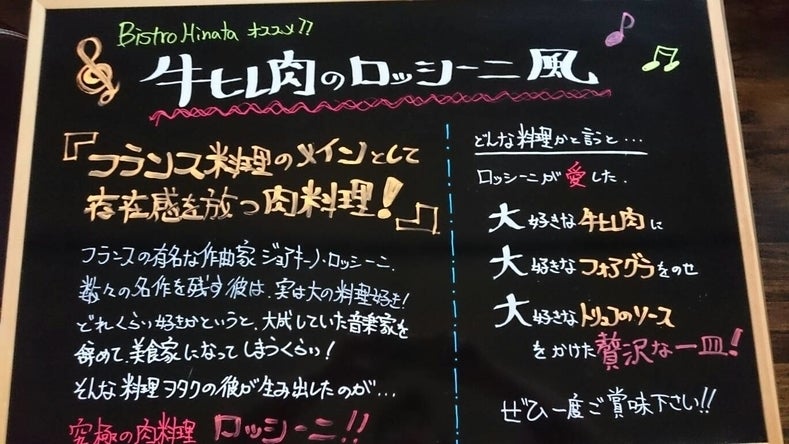 Bistro Hinata オススメ!!
牛ヒレ肉のロッシーニ風
『フランス料理のメインとして
存在感を放つ肉料理!』
フランスの有名な作曲家 ジョアキーノ・ロッシーニ.
数々の名作を残す彼は、実は大の料理好き!
どれくらい好きかというと、大成していた音楽家を
辞めて、美食家になってしまうくらい!
そんな料理ヲタクの彼が生み出したのが…
究極の肉料理 ロッシーニ!!
どんな料理かと言うと…
ロッシーニが愛した.
大好きな牛ヒレ肉に
大好きなフォアグラをのせ
大好きなトリュフのソース
をかけた贅沢な一皿!
ぜひ一度ご賞味下さい!!